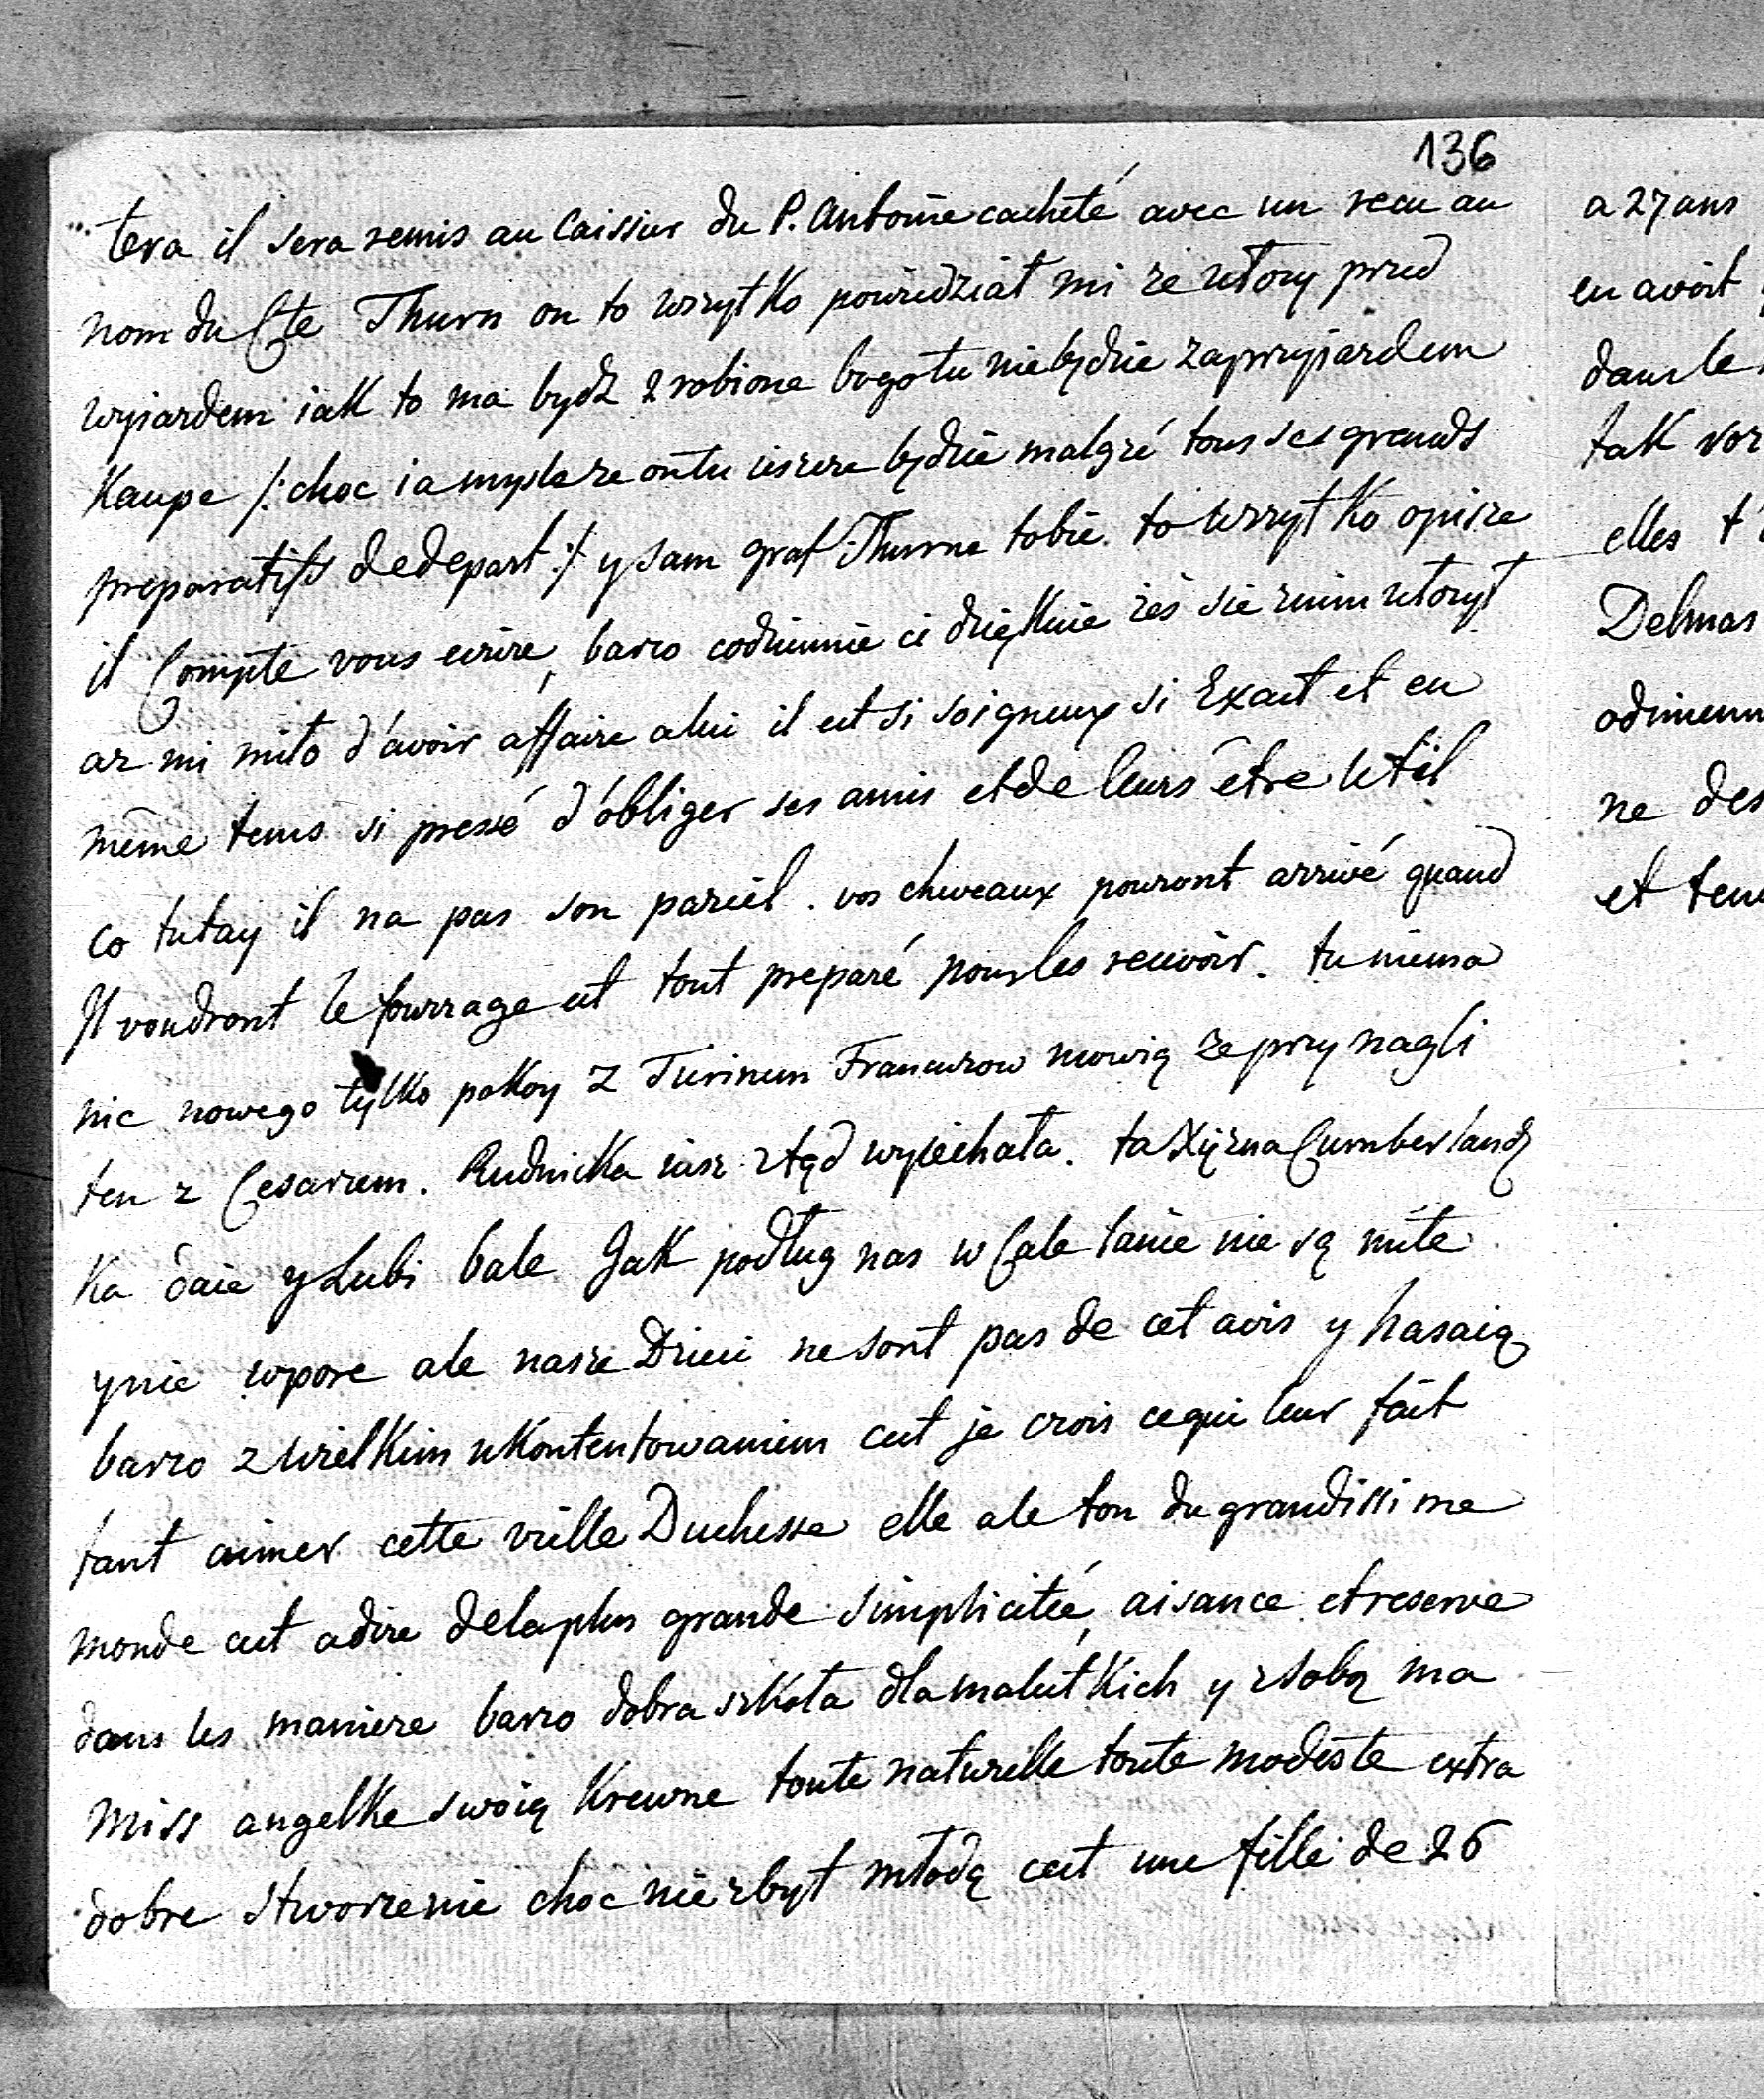 136
tera il sera remis au Caissier du P. Antoine cacheté avec un recu au
nom du Cte Thurn on to wszytko powiedział mi ze utozy przed
wyiazdem iak to ma bydz zrobione bo go tu niebędzie za przyjazdem
Kaupe /: choc ia mysle ze on tu ieszcze będzie malgré tous ses grands
preparatifs de depart :/ y sam graf Thurne tobie to wszytko opisze
il Compte vous ecrire, barzo codziennie ci dziękuie żeś sie z nim utozył
az mi miło d'avoir affaire a lui il est si soigneux si Exact et en
même tems si pressé d'obliger ses amis et de leurs être Util
co tutay il na pas son pareil. vos cheveaux pouront arrivé quand
Il voudront le fourrage est tout preparé pour les recevoir. tu niema
nic nowego tylko pokoy z Turinem Francuzow mowią ze przy nagli
ten z Cesarzem. Rudnicka iusz ztąd wyiechała. ta Xiężna Cumberland
ka daie y Lubi bale Jak podług nas w Cale tanie nie są miłe
y nie wpore ale nasze Dzieci ne sont pas de cet avis y hasaią
barzo z wielkim ukontentowaniem cest je crois ce qui leur fait
tant aimer cette vieille Duchesse elle a le ton du grandissime
monde cest a dire de la plus grande simplicitée, aisance et reserve
dans les maniere barzo dobra szkoła dla malutkich y z sobą ma
Miss angelke swoią Krewne toute naturelle toute modeste extra
dobre stworzenie choc nie zbyt młodą cest une fille de 26
a 27 ans
en avoit
dans le
tak
elles
Delmas
ne des
et